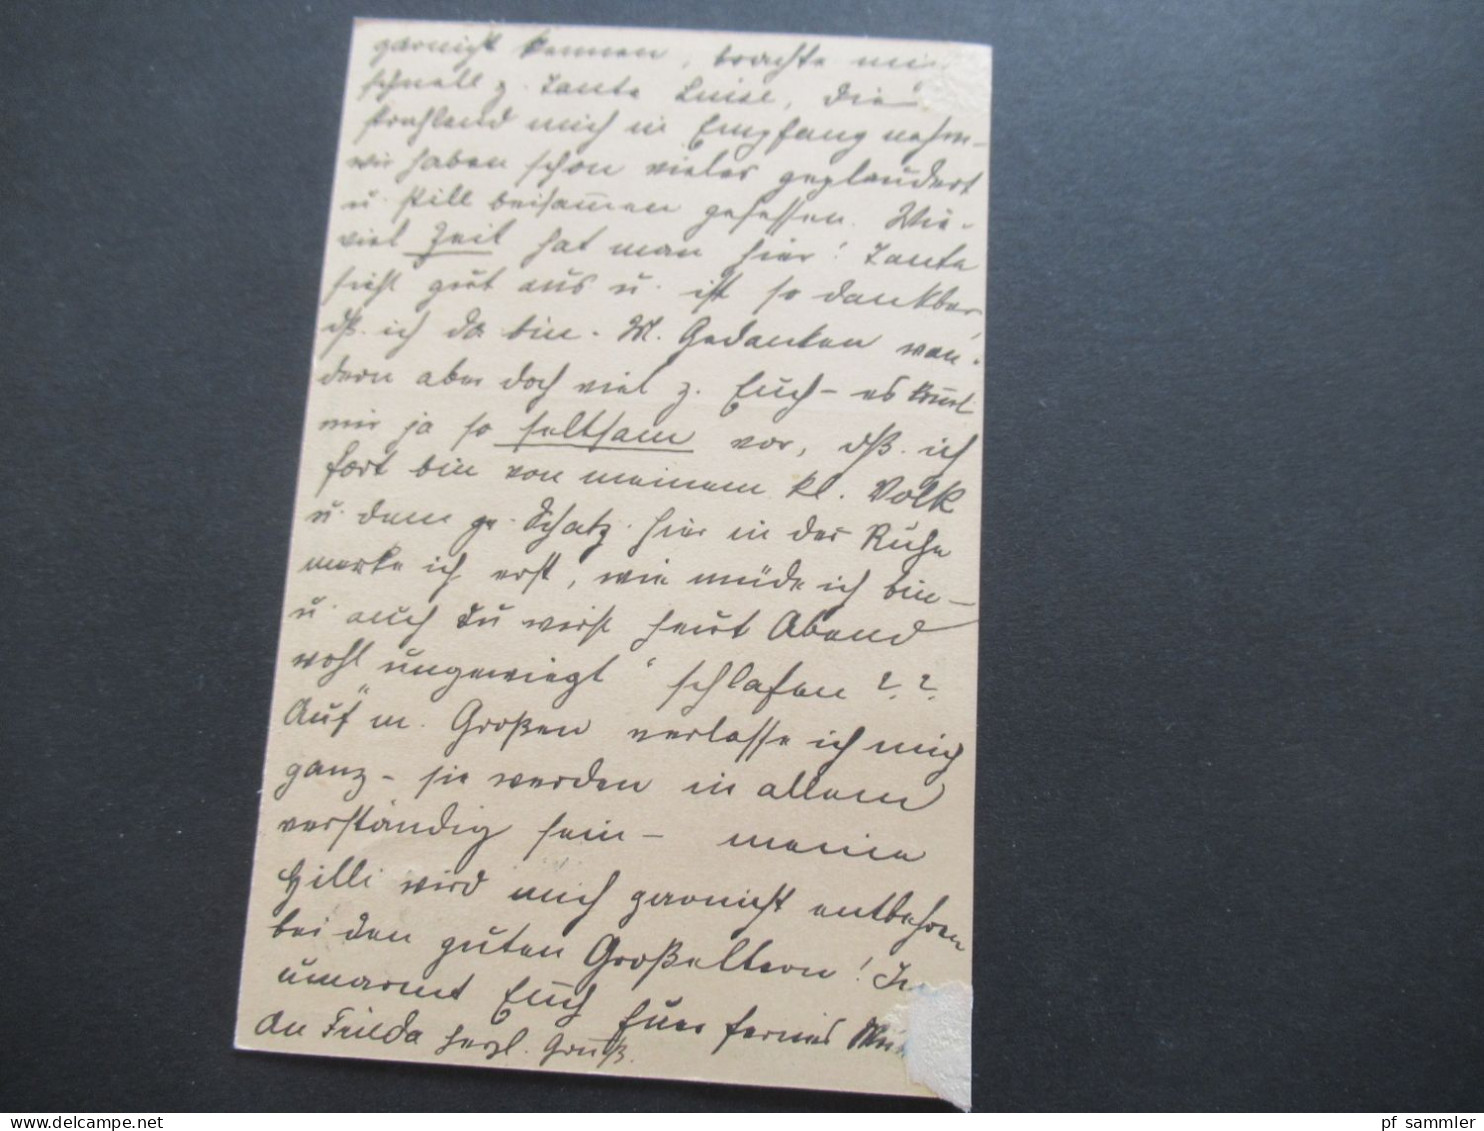 garnicht kennen, brachte mi
schnell z. Tante Luise, die
strahlend mich in Empfang nahm –
wir haben schon vieles geplaudert
u. still beisammen gesessen. Wie-
viel Zeit hat man hier! Tante
sieht gut aus u. ist so dankbar,
dß. ich da bin. M. Gedanken wan-
dern aber doch viel z. Euch – es kommt
mir ja so seltsam vor, dß. ich
fort bin von meinem kl. Volk
u. dem gr. Schatz. Hier in der Ruhe
merke ich erst, wie müde ich bin –
u. auch Du wirst heut Abend
wohl „ungewiegt“ schlafen??
Auf m. Großen verlasse ich mich
ganz – sie werden in allem
verständig sein – meine
Hilli wird mich garnicht entbehren
bei den guten Großeltern! In
umarmt Euch Euer fernes
An Frieda herzl. Gruß.
pf sammler
delcampe.net